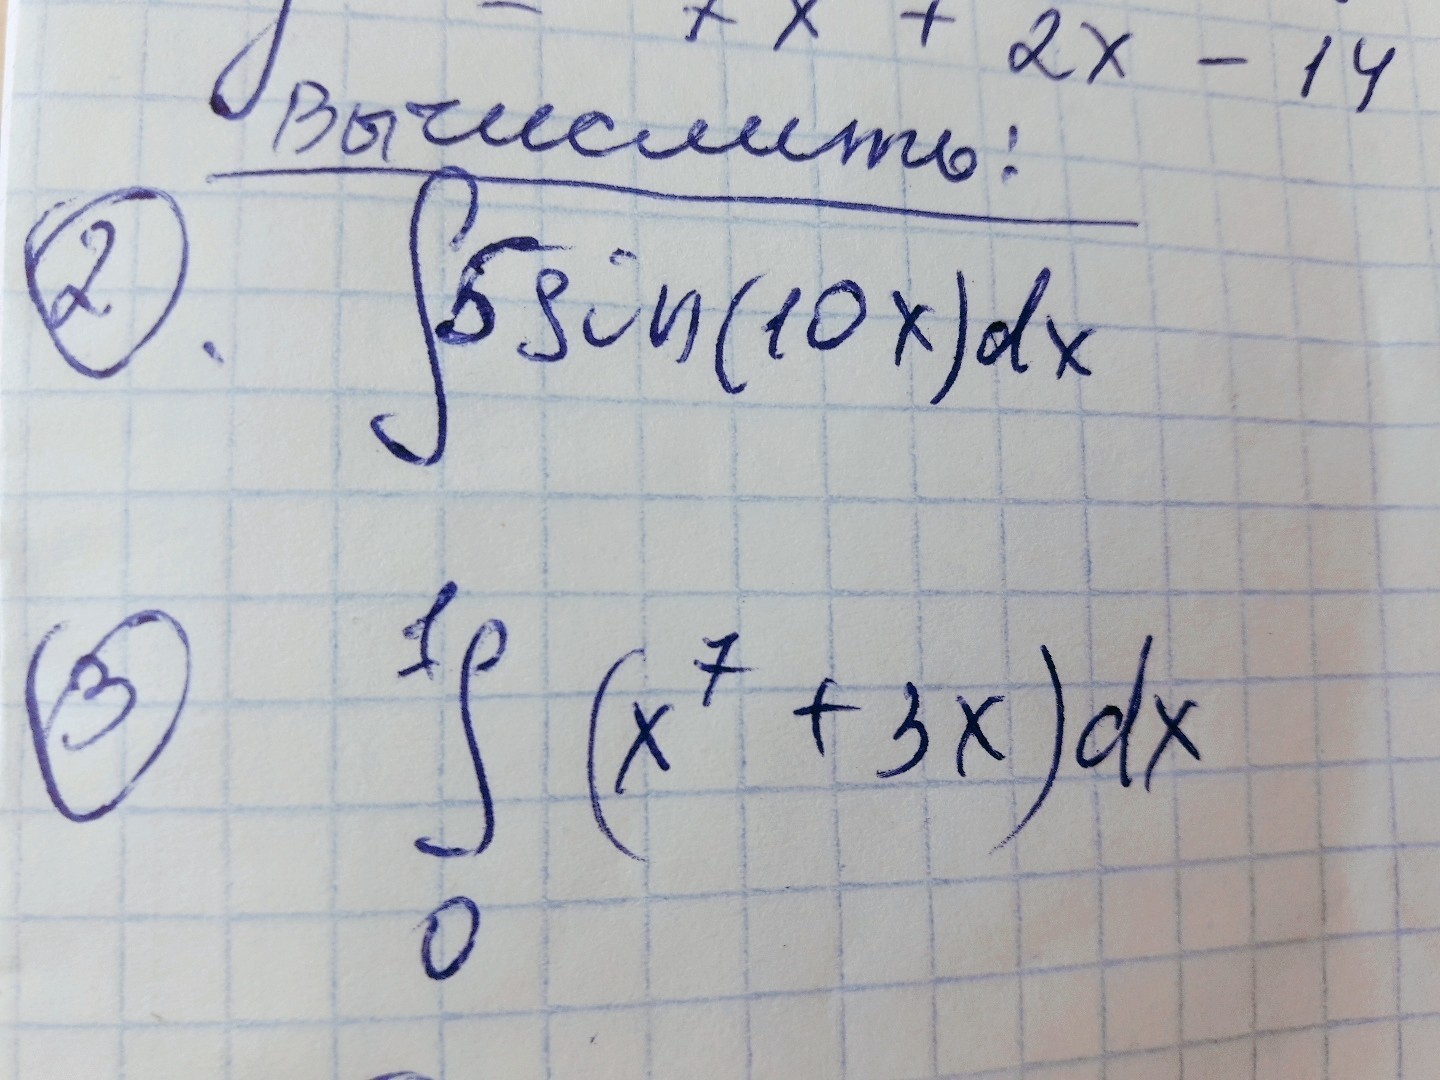 = 7x + 2x - 14
Вычислить:
2. ∫5sin(10x)dx
3 ₀¹∫ (x⁷ + 3x)dx